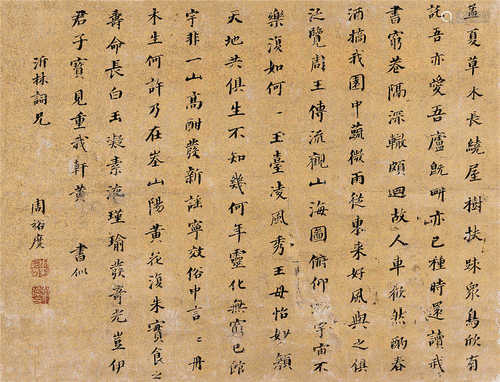 孟夏草木長繞屋樹扶踈衆鳥欣有
託吾亦愛吾廬既畊亦已種時還讀我
書窮巷隔深轍頗迴故人車歡然酌春
酒摘我園中蔬微雨從東来好風與之俱
泛覽周王傳流觀山海圖俯仰宇宙不
樂復如何 一 玉臺凌風秀王母怡妙顏
天地共俱生不知幾何年靈化無窮已館
宇非一山高酣發新謡寧效俗中言 二 丹
木生何許乃在峚山陽黄花復朱實食之
壽命長白玉凝素液瑾瑜發奇光豈伊
君子寶見重我軒黄 書似
沂林詞兄
周裕度